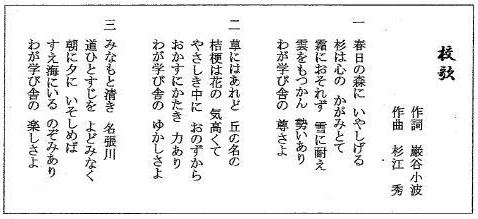 校歌
作詞 巌谷小波
作曲 杉江 秀
一 春日の森に いやしげる
杉は心の かがみとて
霜におそれず 雪に耐え
雲をもつかん 勢いあり
わが学び舎の 尊さよ
二 草にはあれど 丘の名の
桔梗は花の 気高くて
やさしき中に おのずから
おかすにかたき 力あり
わが学び舎の ゆかしさよ
三 みなもと清き 名張川
道ひとすじを よどみなく
朝に夕に いそしめば
すえ海にいる のぞみあり
わが学び舎の 楽しさよ